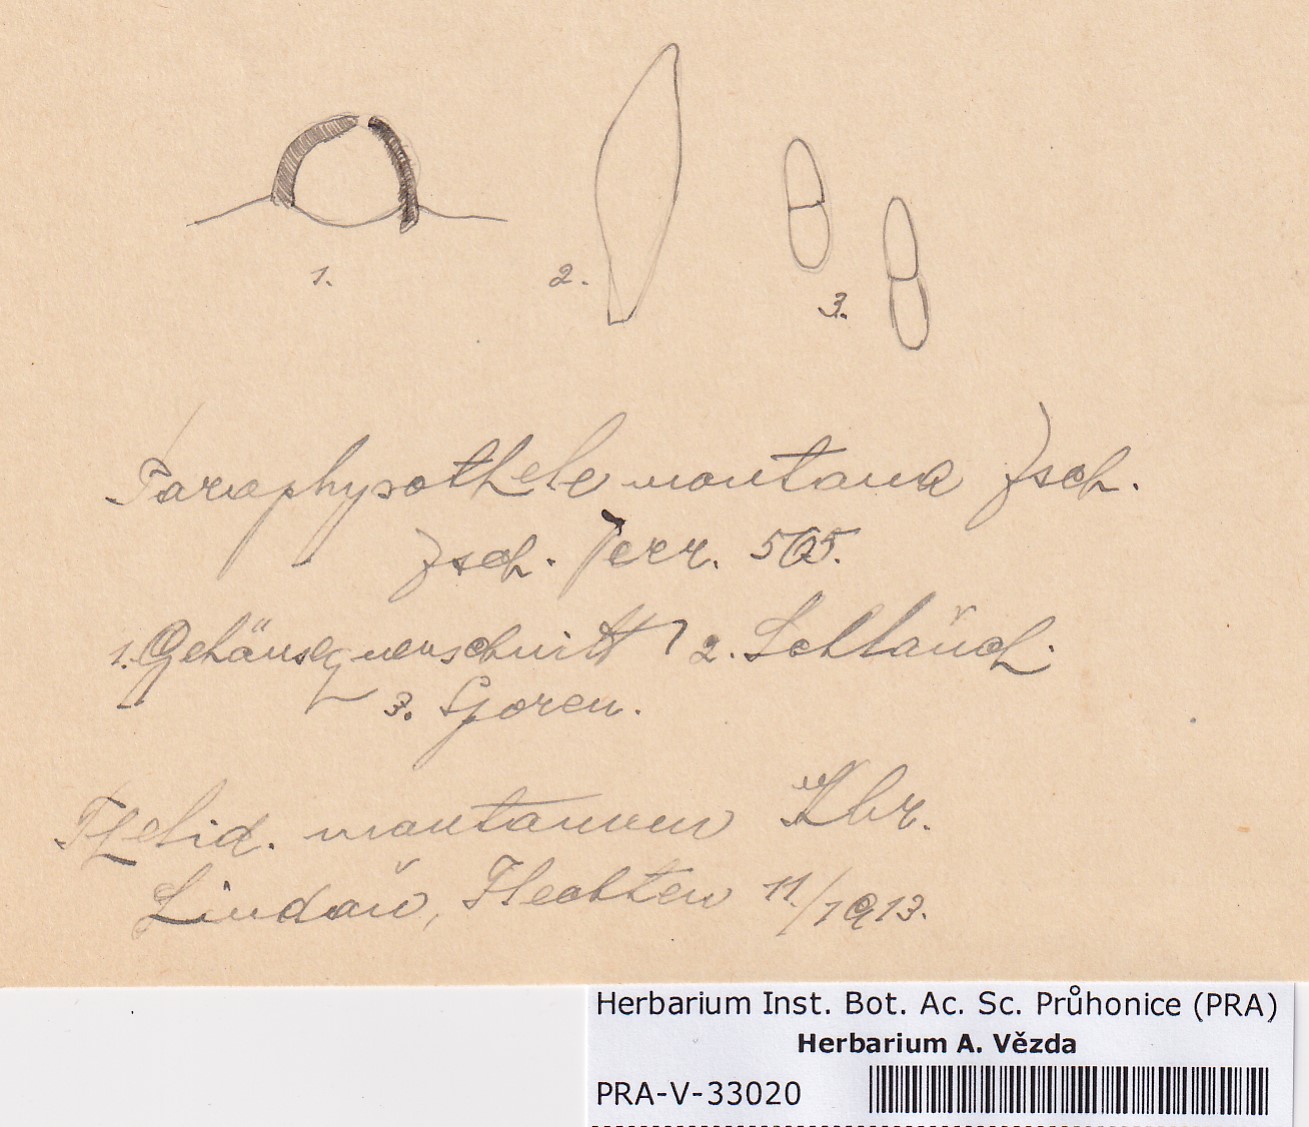 1. 2. 3.
Paraphysothele montana Zsch.
Zsch. Perr. 505.
1. Gehäusequerschnitt 2. Schlauch.
3. Sporen.
Thelid. montanum Kbr.
Lindau, Flechten 11./1913.
Herbarium Inst. Bot. Ac. Sc. Průhonice (PRA)
Herbarium A. Vězda
PRA-V-33020